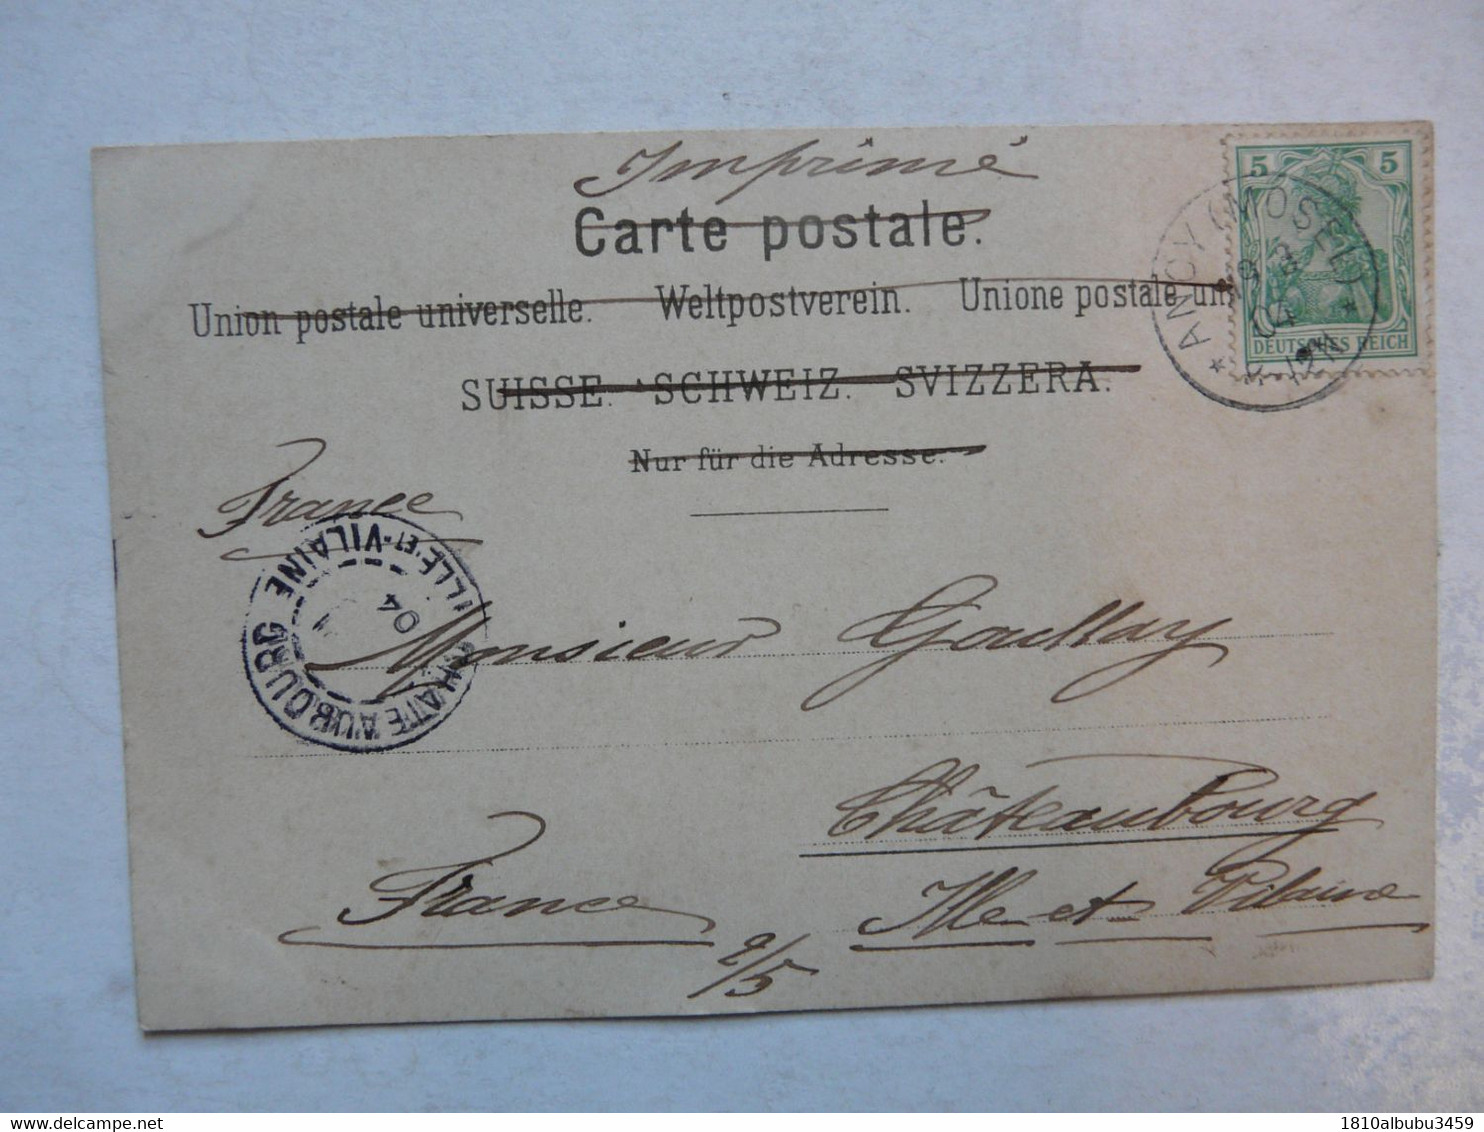 Imprimé
Carte postale.
Union postale universelle. Weltpostverein. Unione postale un
SUISSE. SCHWEIZ. SVIZZERA.
Nur für die Adresse.
5 5
DEUTSCHES REICH
* ANCY (MOSEL) *
04
France
CHATEAUBOURG
ILLE-ET-VILAINE
04
Monsieur
Châteaubourg
Ille-et-Vilaine
France
2/5
delcampe.net
1810albubu3459